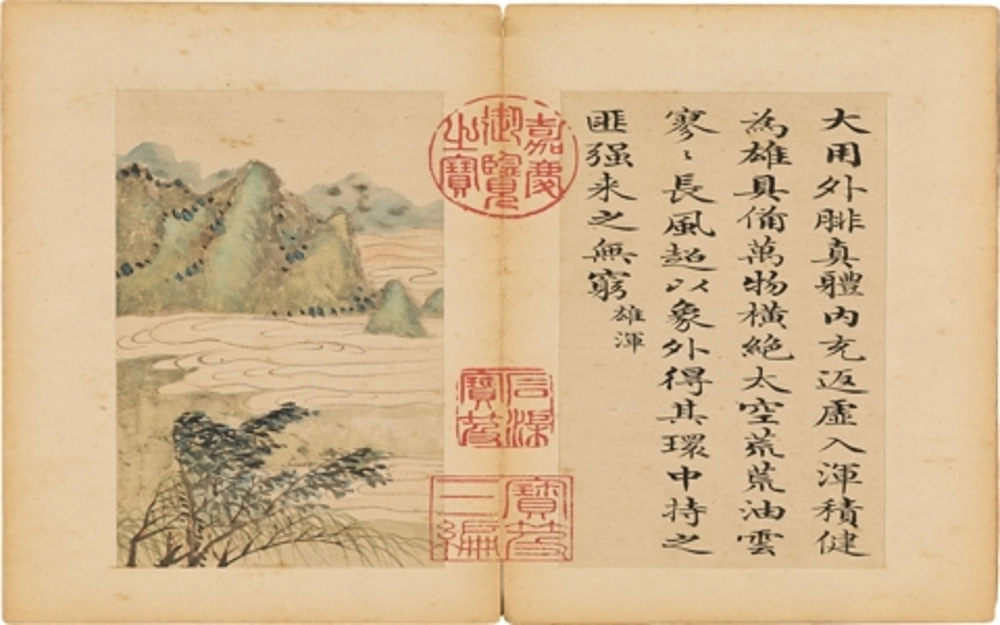 大用外腓真體內充返虛入渾積健
為雄具備萬物橫絕太空荒荒油雲
寥〻長風超以象外得其環中持之
匪强來之無窮
雄渾
嘉慶
御覽
之寶
石渠
寶笈
寶笈
三編